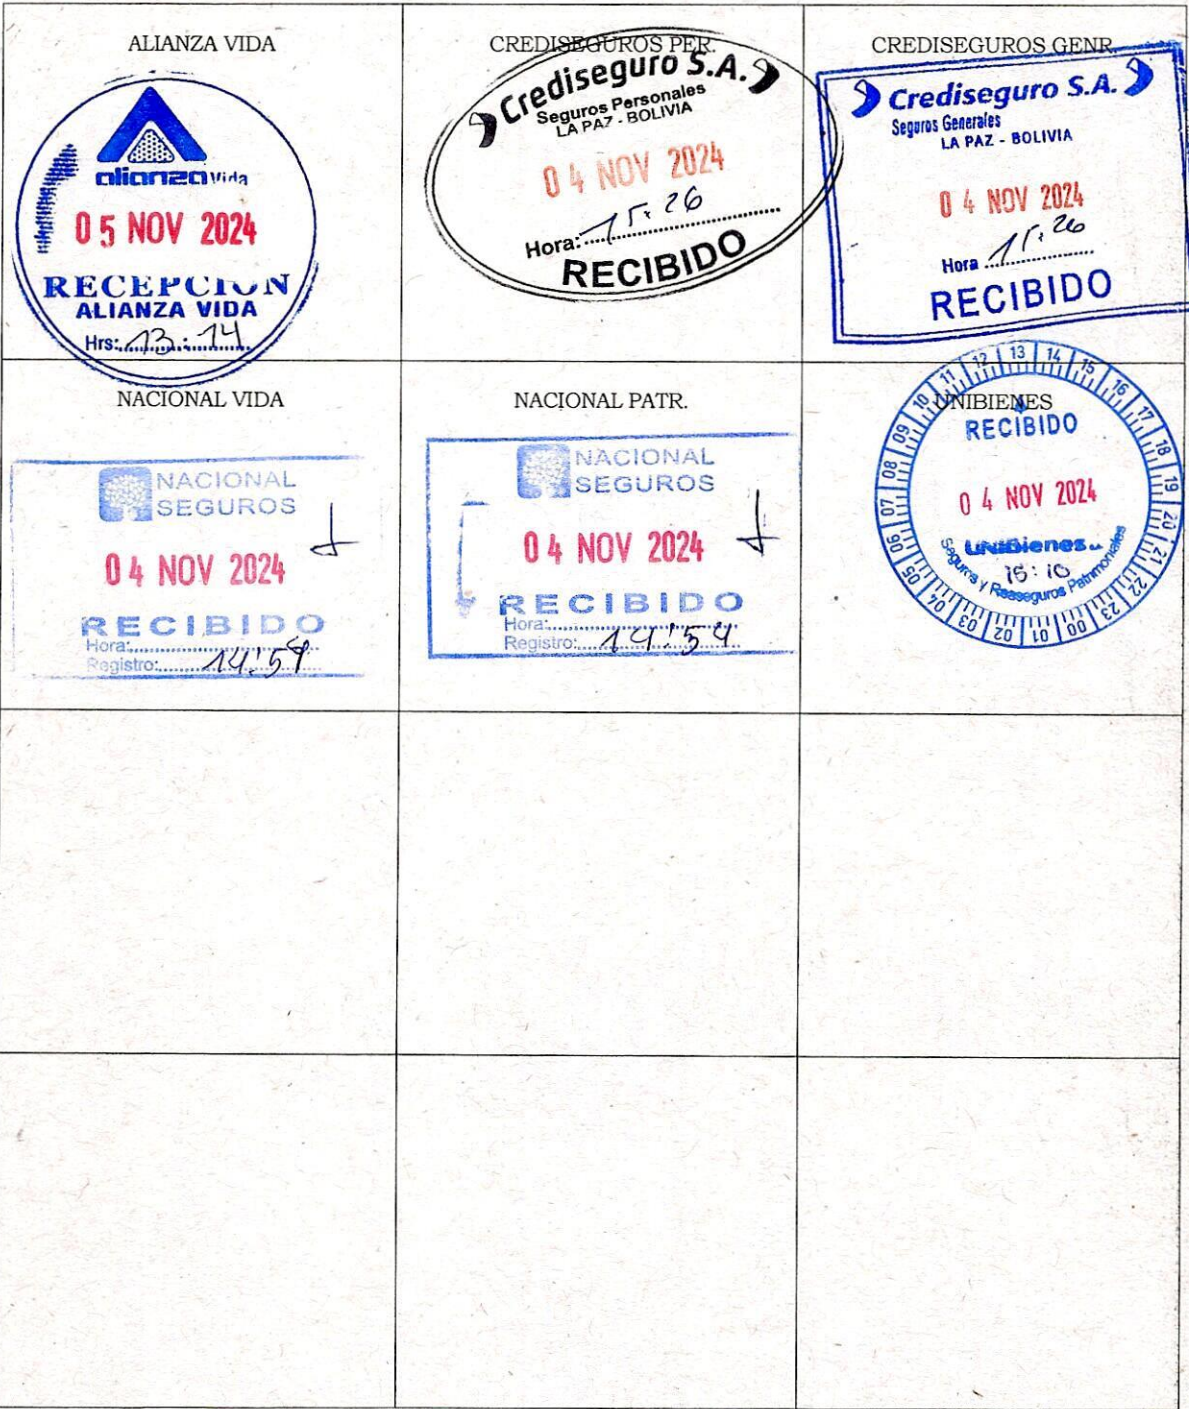 ALIANZA VIDA
alianza Vida
05 NOV 2024
RECEPCION
ALIANZA VIDA
Hrs: 13:14
CREDISEGUROS PER.
Crediseguro S.A.
Seguros Personales
LA PAZ - BOLIVIA
04 NOV 2024
Hora: 15:26
RECIBIDO
CREDISEGUROS GENR.
Crediseguro S.A.
Seguros Generales
LA PAZ - BOLIVIA
04 NOV 2024
Hora 15:26
RECIBIDO
NACIONAL VIDA
NACIONAL
SEGUROS
04 NOV 2024
RECIBIDO
Hora:
Registro: 14:59
NACIONAL PATR.
NACIONAL
SEGUROS
04 NOV 2024
RECIBIDO
Hora:
Registro: 14:59
UNIBIENES
RECIBIDO
04 NOV 2024
UNIBienes
Seguros y Reaseguros Patrimoniales
13 14 15 16 17 18 19 20 21 22 23 00 01 02 03 04 05 06 07 08 09 10 11 12